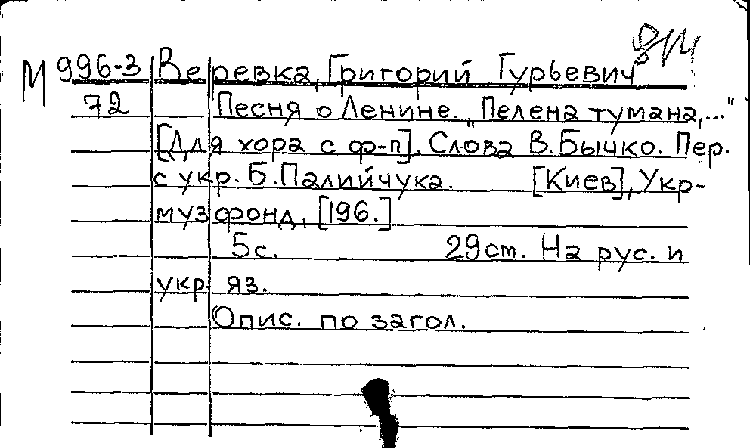 М 996-3 Веревка, Григорий Гурьевич
72 Песня о Ленине. „Пелена тумана,..."
[Для хора с ф-п]. Слова В. Бычко. Пер.
с укр. Б. Палийчука. [Киев], Укр-
музфонд, [196.]
5с. 29см. На рус. и
укр. яз.
Опис. по загол.